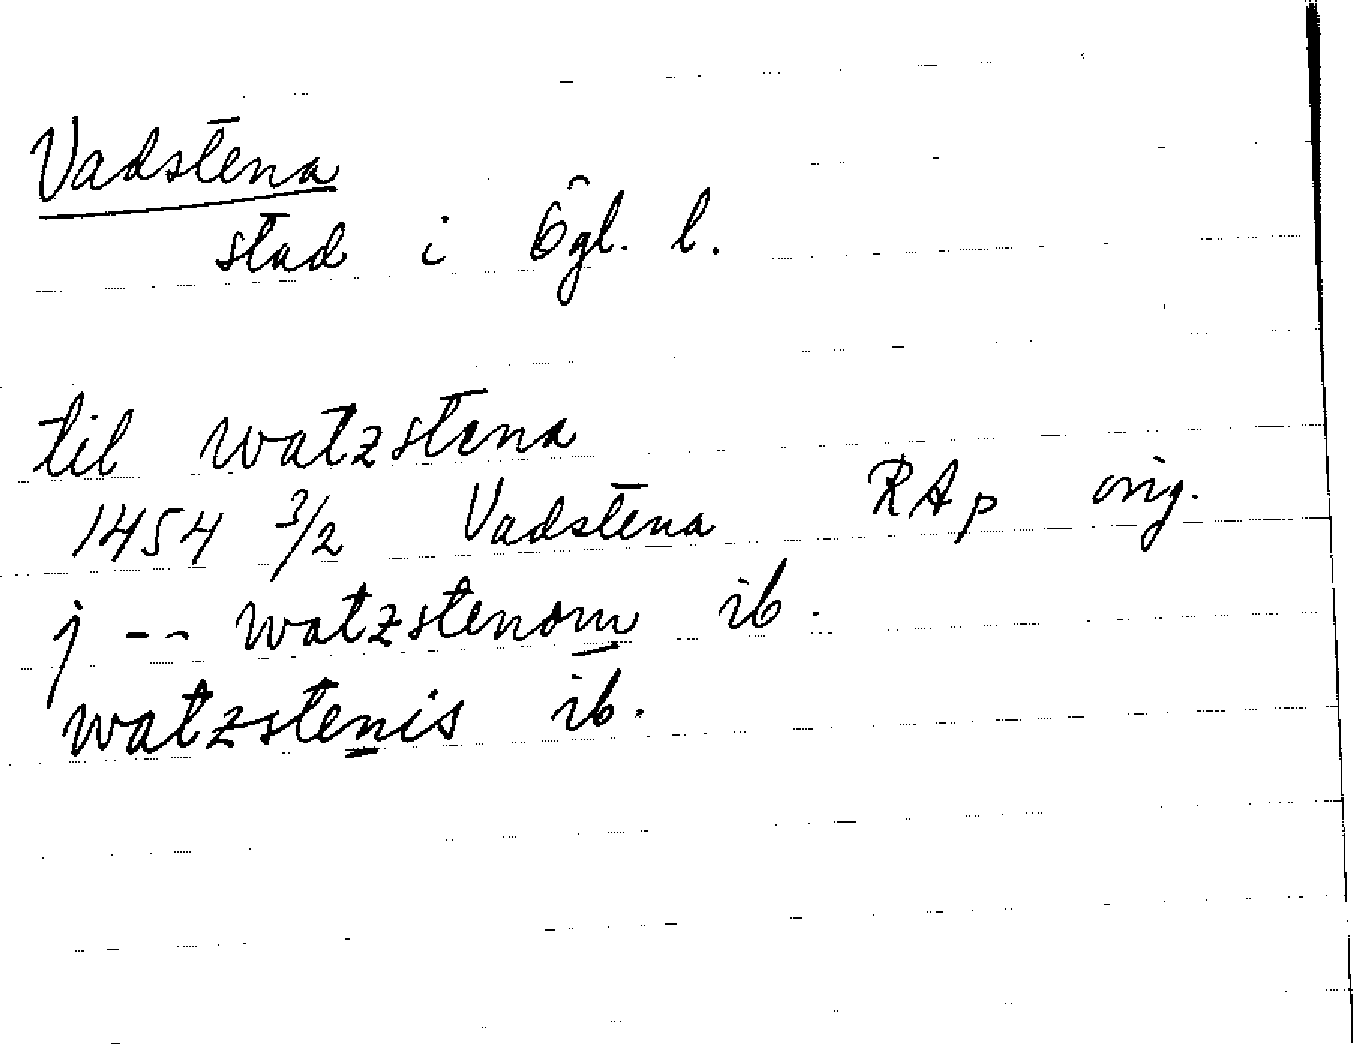 Vadstena
stad i Ögl. l.
til watzstena
1454 3/2 Vadstena RAp orig.
j -- watzstenom ib.
watzstenis ib.